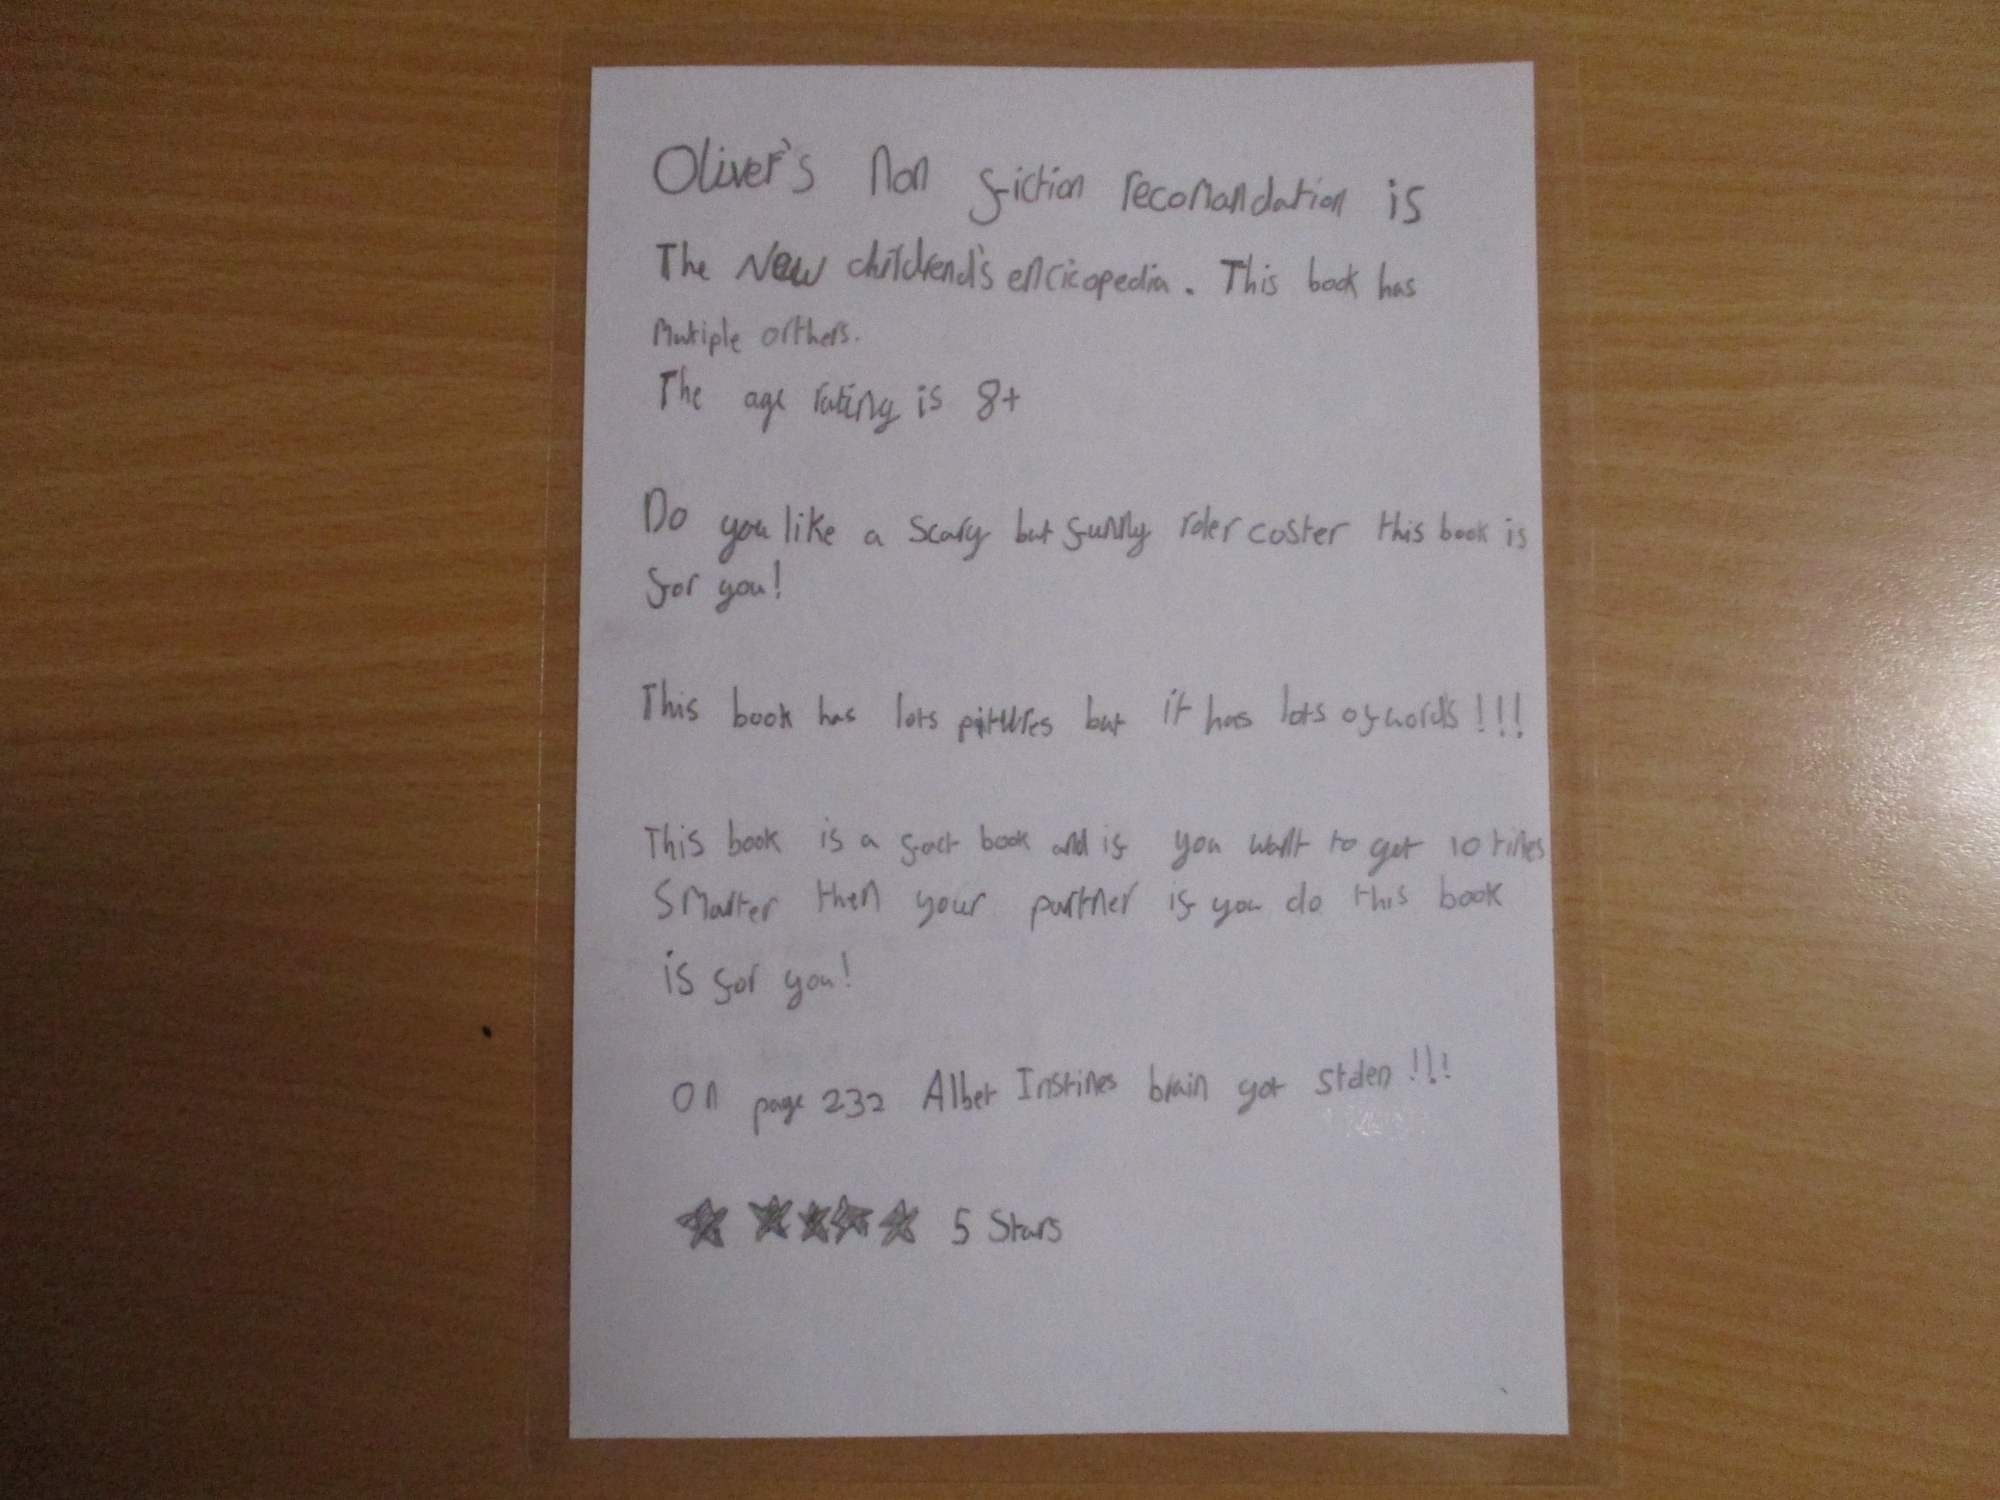 Oliver's non fiction recomandation is
The New childrend's encicopedia. This book has
Multiple orthers.
The age rating is 8+
Do you like a scary but funny roler coster this book is
for you!
This book has lots pittures but it has lots of words!!!
This book is a fact book and if you want to get 10 times
smarter then your partner if you do this book
is for you!
On page 232 Albet Instines brain got stolen!!!
5 Stars